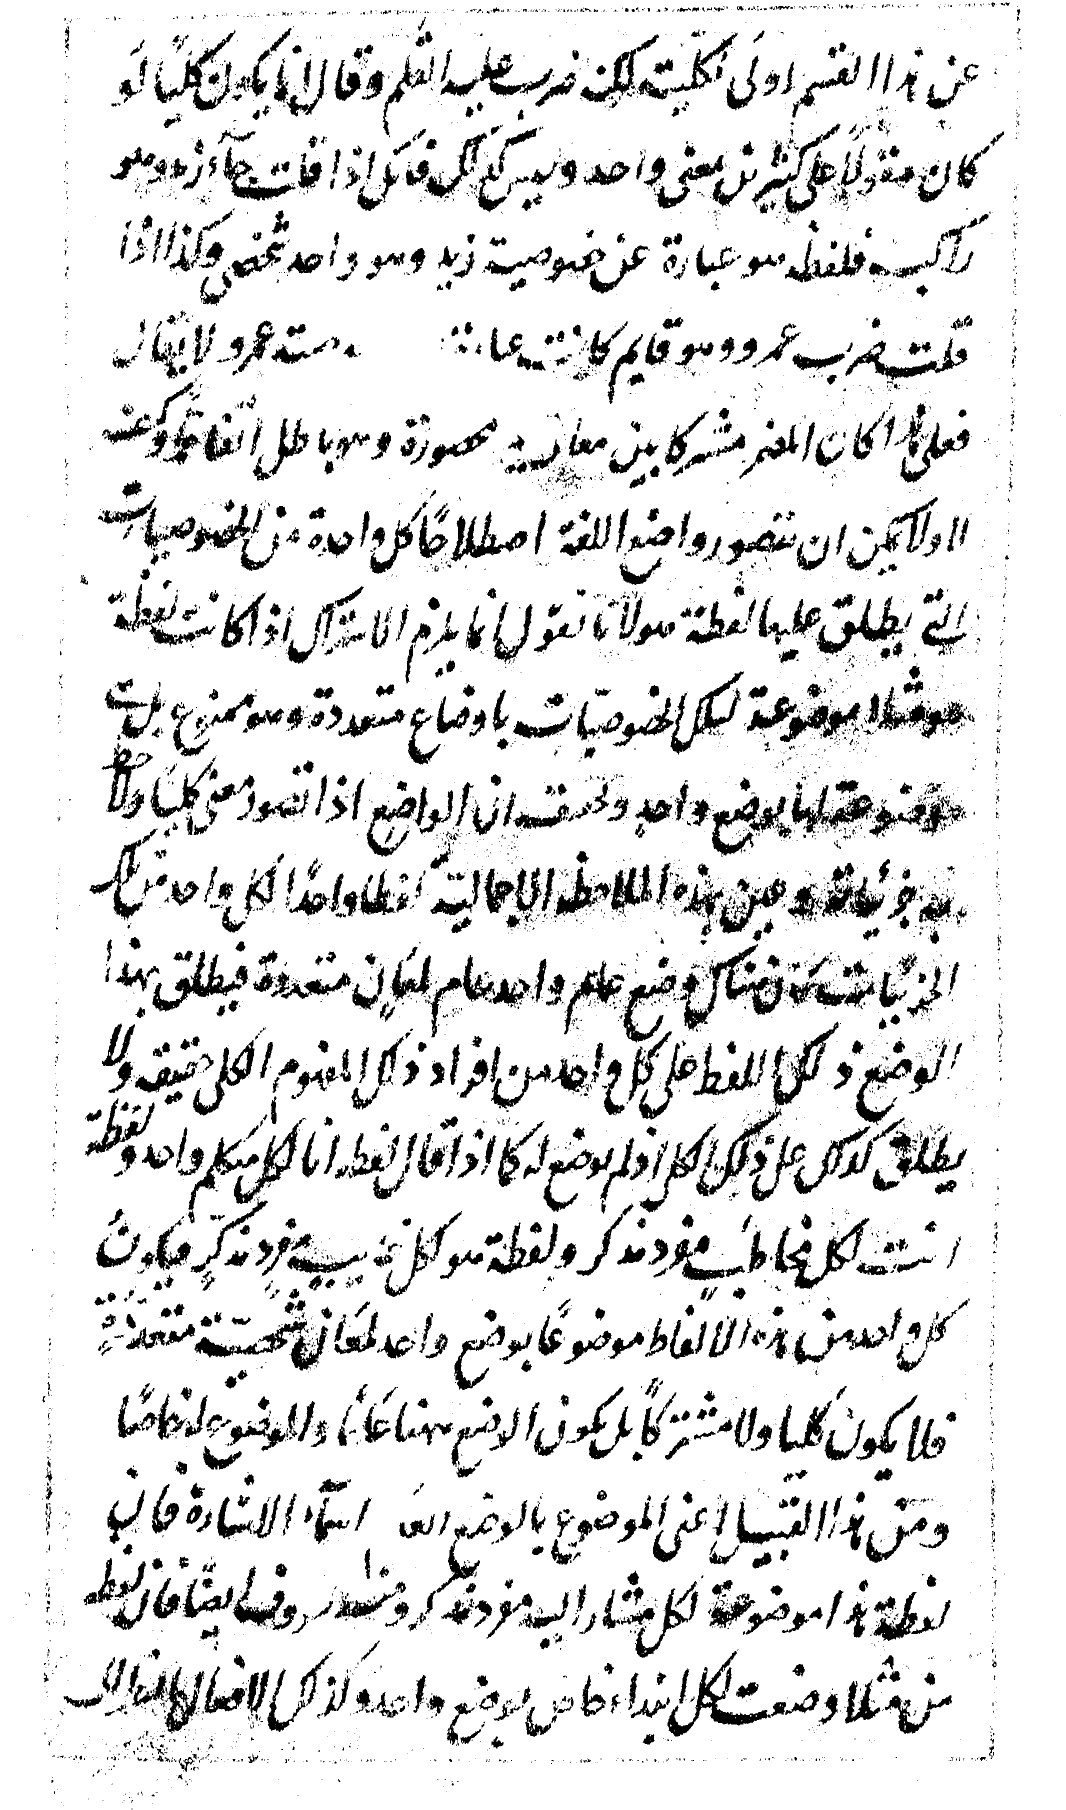 عن هذا القسم اولى بكلية لكن ضرب عليه القلم وقال انما يكون كليًا لو
كان مقولًا على كثيرين بمعنى واحد وليس كذلك فانك اذا قلت جآء زيد وهو
راكب فلفظه هو عبارة عن خصوصية زيد وهو واحد شخصى وكذا اذا
قلت ضرب عمرو وهو قايم كانت عبارة عمرو لا يقال
فعلى هذا كان المضمر مشتركا بين معان محصورة وهو باطل اتفاقا
اذ لا يمكن ان يتصور واضع اللغة اصطلاحًا كل واحدة من الخصوصيات
التى يطلق عليها لفظة هو لانا نقول انما يلزم الاشتراك اذا كانت لفظة
هو مثلا موضوعة لتلك الخصوصيات باوضاع متعددة وهو ممنوع بل هى
موضوعة لها بوضع واحد وتحقيقه ان الواضع اذا تصور معنى كليًا ولاحظ
به جزئياته وعين بهذه الملاحظة الاجمالية لفظا واحدًا لكل واحد من تلك
الجزئيات كان هناك وضع عام واحد عام لمعان متعددة فيطلق بهذا
الوضع ذلك اللفظ على كل واحد من افراد ذلك المفهوم الكلى حقيقة ولا
يطلق كذلك على ذلك الكلى اذ لم يوضع له كما اذا قال لفظ انا لكل متكلم واحد ولفظة
انت لكل مخاطب مفرد مذكر ولفظة هو لكل غايب مفرد مذكر فيكون
كل واحد من هذه الالفاظ موضوعًا بوضع واحد لمعان شخصية متعددة
فلا يكون كليا ولا مشتركًا بل يكون الوضع ههنا عامًا والموضوع له خاصًا
ومن هذا القبيل اعنى الموضوع بالوضع العام اسمآء الاشارة فان
لفظة هذا موضوعة لكل مشار اليه مفرد مذكر ومنه الحروف ايضًا فان لفظة
من مثلا وضعت لكل ابتداء خاص بوضع واحد وكذلك الافعال